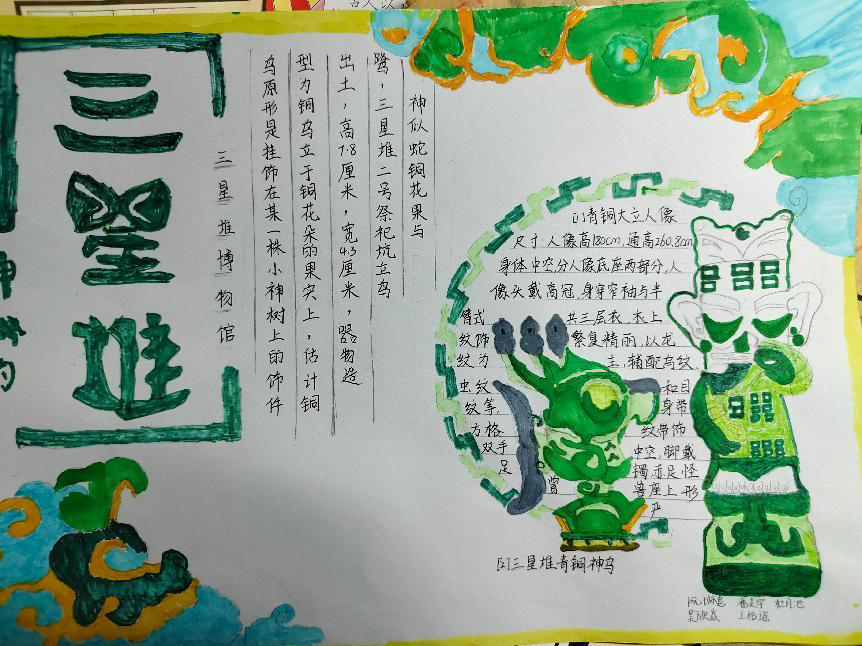 三星堆
三星堆博物馆
神似蛇铜花果与
鹭，三星堆二号祭祀坑立鸟
出土，高7.8厘米，宽4.3厘米，器物造
型为铜鸟立于铜花朵的果实上，估计铜
鸟原形是挂饰在某一株小神树上的饰件
[1]青铜大立人像
尺寸:人像高180cm,通高260.8cm
身体中空,分人像底座两部分,人
像头戴高冠,身穿窄袖与半
臂式 共三层衣,衣上
纹饰 繁复精丽,以龙
纹为 主,辅配鸟纹
虫纹 和目
纹等, 身带
方格 纹带饰
双手 中空,脚戴
足 镯,赤足怪
曾 兽座上形
严
[2]三星堆青铜神鸟